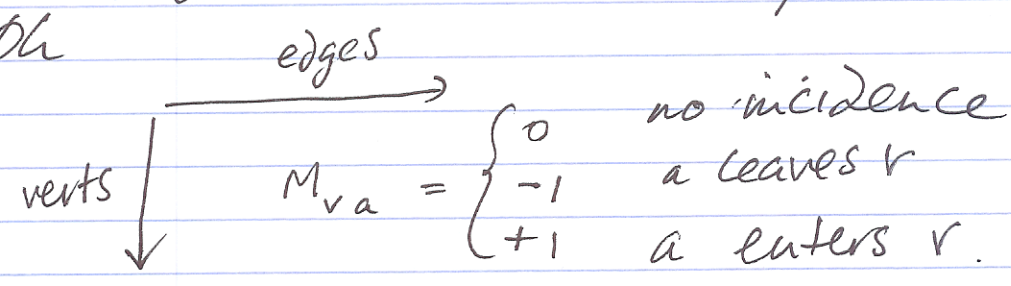 edges
verts
M_va = { 0 no incidence
-1 a leaves v
+1 a enters v.